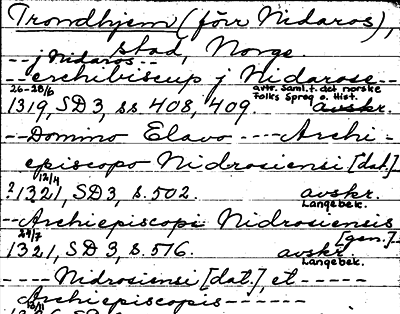 Trondhjem (förr Nidaros),
stad, Norge
-- j Nidaros --
-- erchibiscup j Nidarose --
26-28/6 avtr. Saml. t. det norske
Folks Sprog o. Hist.
1319, SD 3, ss. 408, 409 avskr.
-- Domino Elavo ---- Archi-
episcopo Nidrosiensi [dat.]
12/4
?1321, SD 3, s. 502. avskr.
Langebek.
-- Archiepiscopi Nidrosiensis
[gen.] --
29/7
1321, SD 3, s. 516. avskr.
Langebek.
---- Nidrosiensi [dat.], et -----
Archiepiscopis ------